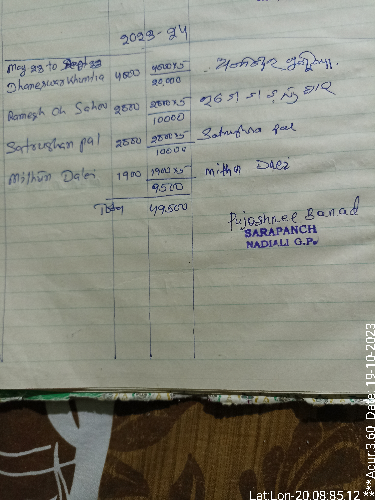 2023-24
May 23 to Sept 23
Dhaneswar Khuntia 4000 4000x5 20,000
Ramesh Ch Sahoo 2000 2000x5 10000
Satrughan pal 2000 2000x5 10000 Satrughna pal
Mithun Dalei 1900 1900x5 9500 Mithun Dalei
Total 49.500
Pujashree Banad
SARAPANCH
NADIALI G.P.
Lat:Lon-20.08:85.12 ***Acur:3.60 Date: 19-10-2023